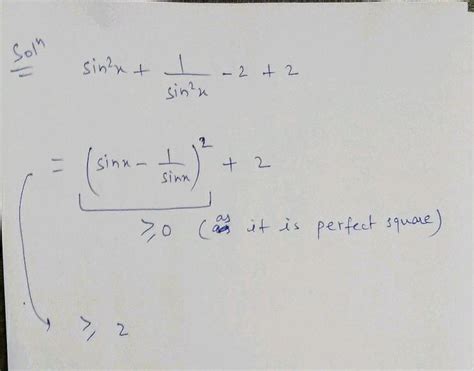 Solⁿ
sin²x + 1/sin²x - 2 + 2
= (sinx - 1/sinx)² + 2
≥ 0 (as it is perfect square)
≥ 2